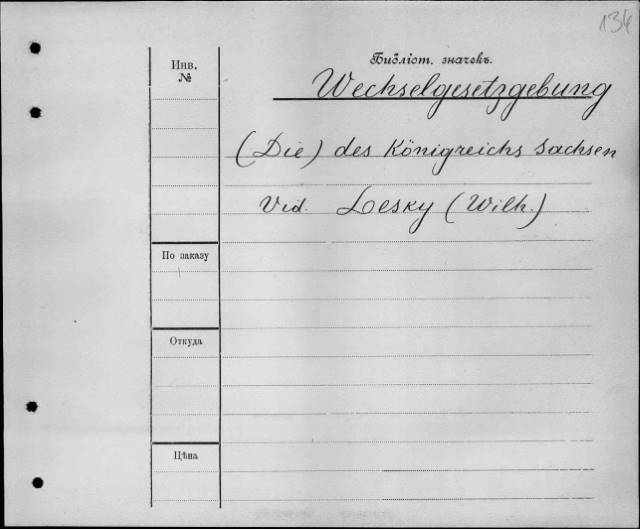 134
Библіот. значекъ.
Инв.
№
Wechselgesetzgebung
(Die) des Königreichs Sachsen
Vid. Lesky (Wilh.)
По заказу
Откуда
Цѣна